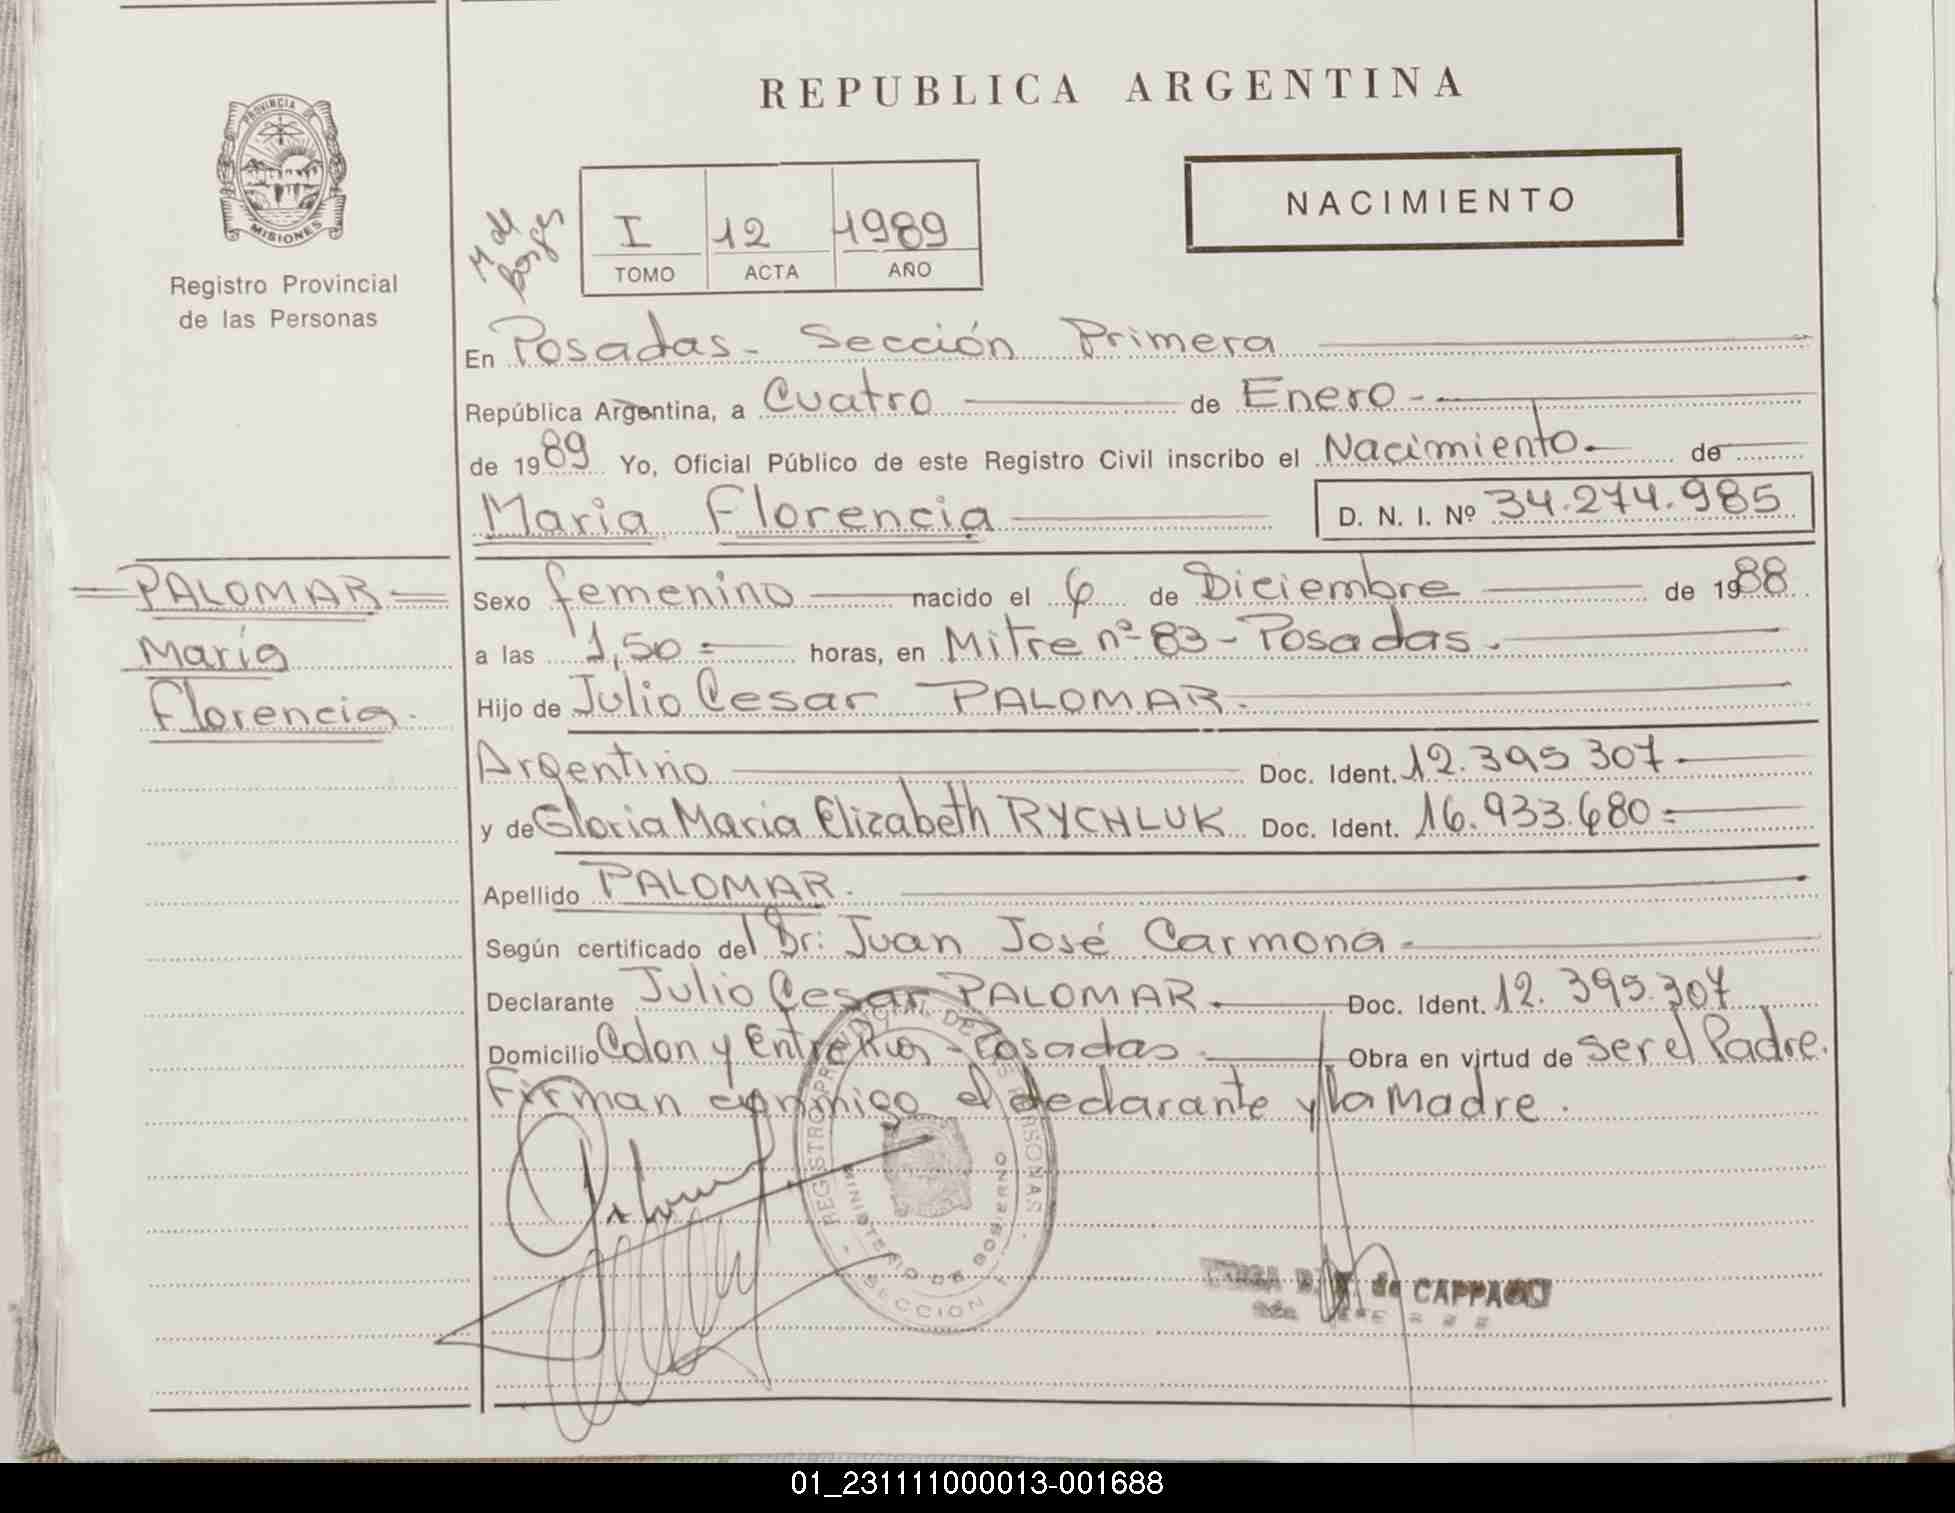 REPUBLICA ARGENTINA
PROVINCIA DE
MISIONES
Registro Provincial
de las Personas
NACIMIENTO
I 12 1989
TOMO ACTA AÑO
En Posadas - Sección Primera
República Argentina, a Cuatro de Enero -
de 1989 Yo, Oficial Público de este Registro Civil inscribo el Nacimiento. de
Maria Florencia D. N. I. Nº 34.274.985
PALOMAR
María
Florencia.
Sexo femenino nacido el 6 de Diciembre de 1988
a las 1,50 = horas, en Mitre nº 83 - Posadas.
Hijo de Julio Cesar PALOMAR.
Argentino Doc. Ident. 12.395 307
y de Gloria Maria Elizabeth RYCHLUK Doc. Ident. 16.933.680 =
Apellido PALOMAR.
Según certificado del Dr: Juan José Carmona.
Declarante Julio Cesar PALOMAR. Doc. Ident. 12.395.307
Domicilio Colon y Entre Rios - Posadas. Obra en virtud de ser el Padre.
Firman conmigo el declarante y la Madre.
REGISTRO PROVINCIAL DE LAS PERSONAS
MINISTERIO DE GOBIERNO
SECCION
de CAPPA
01_231111000013-001688